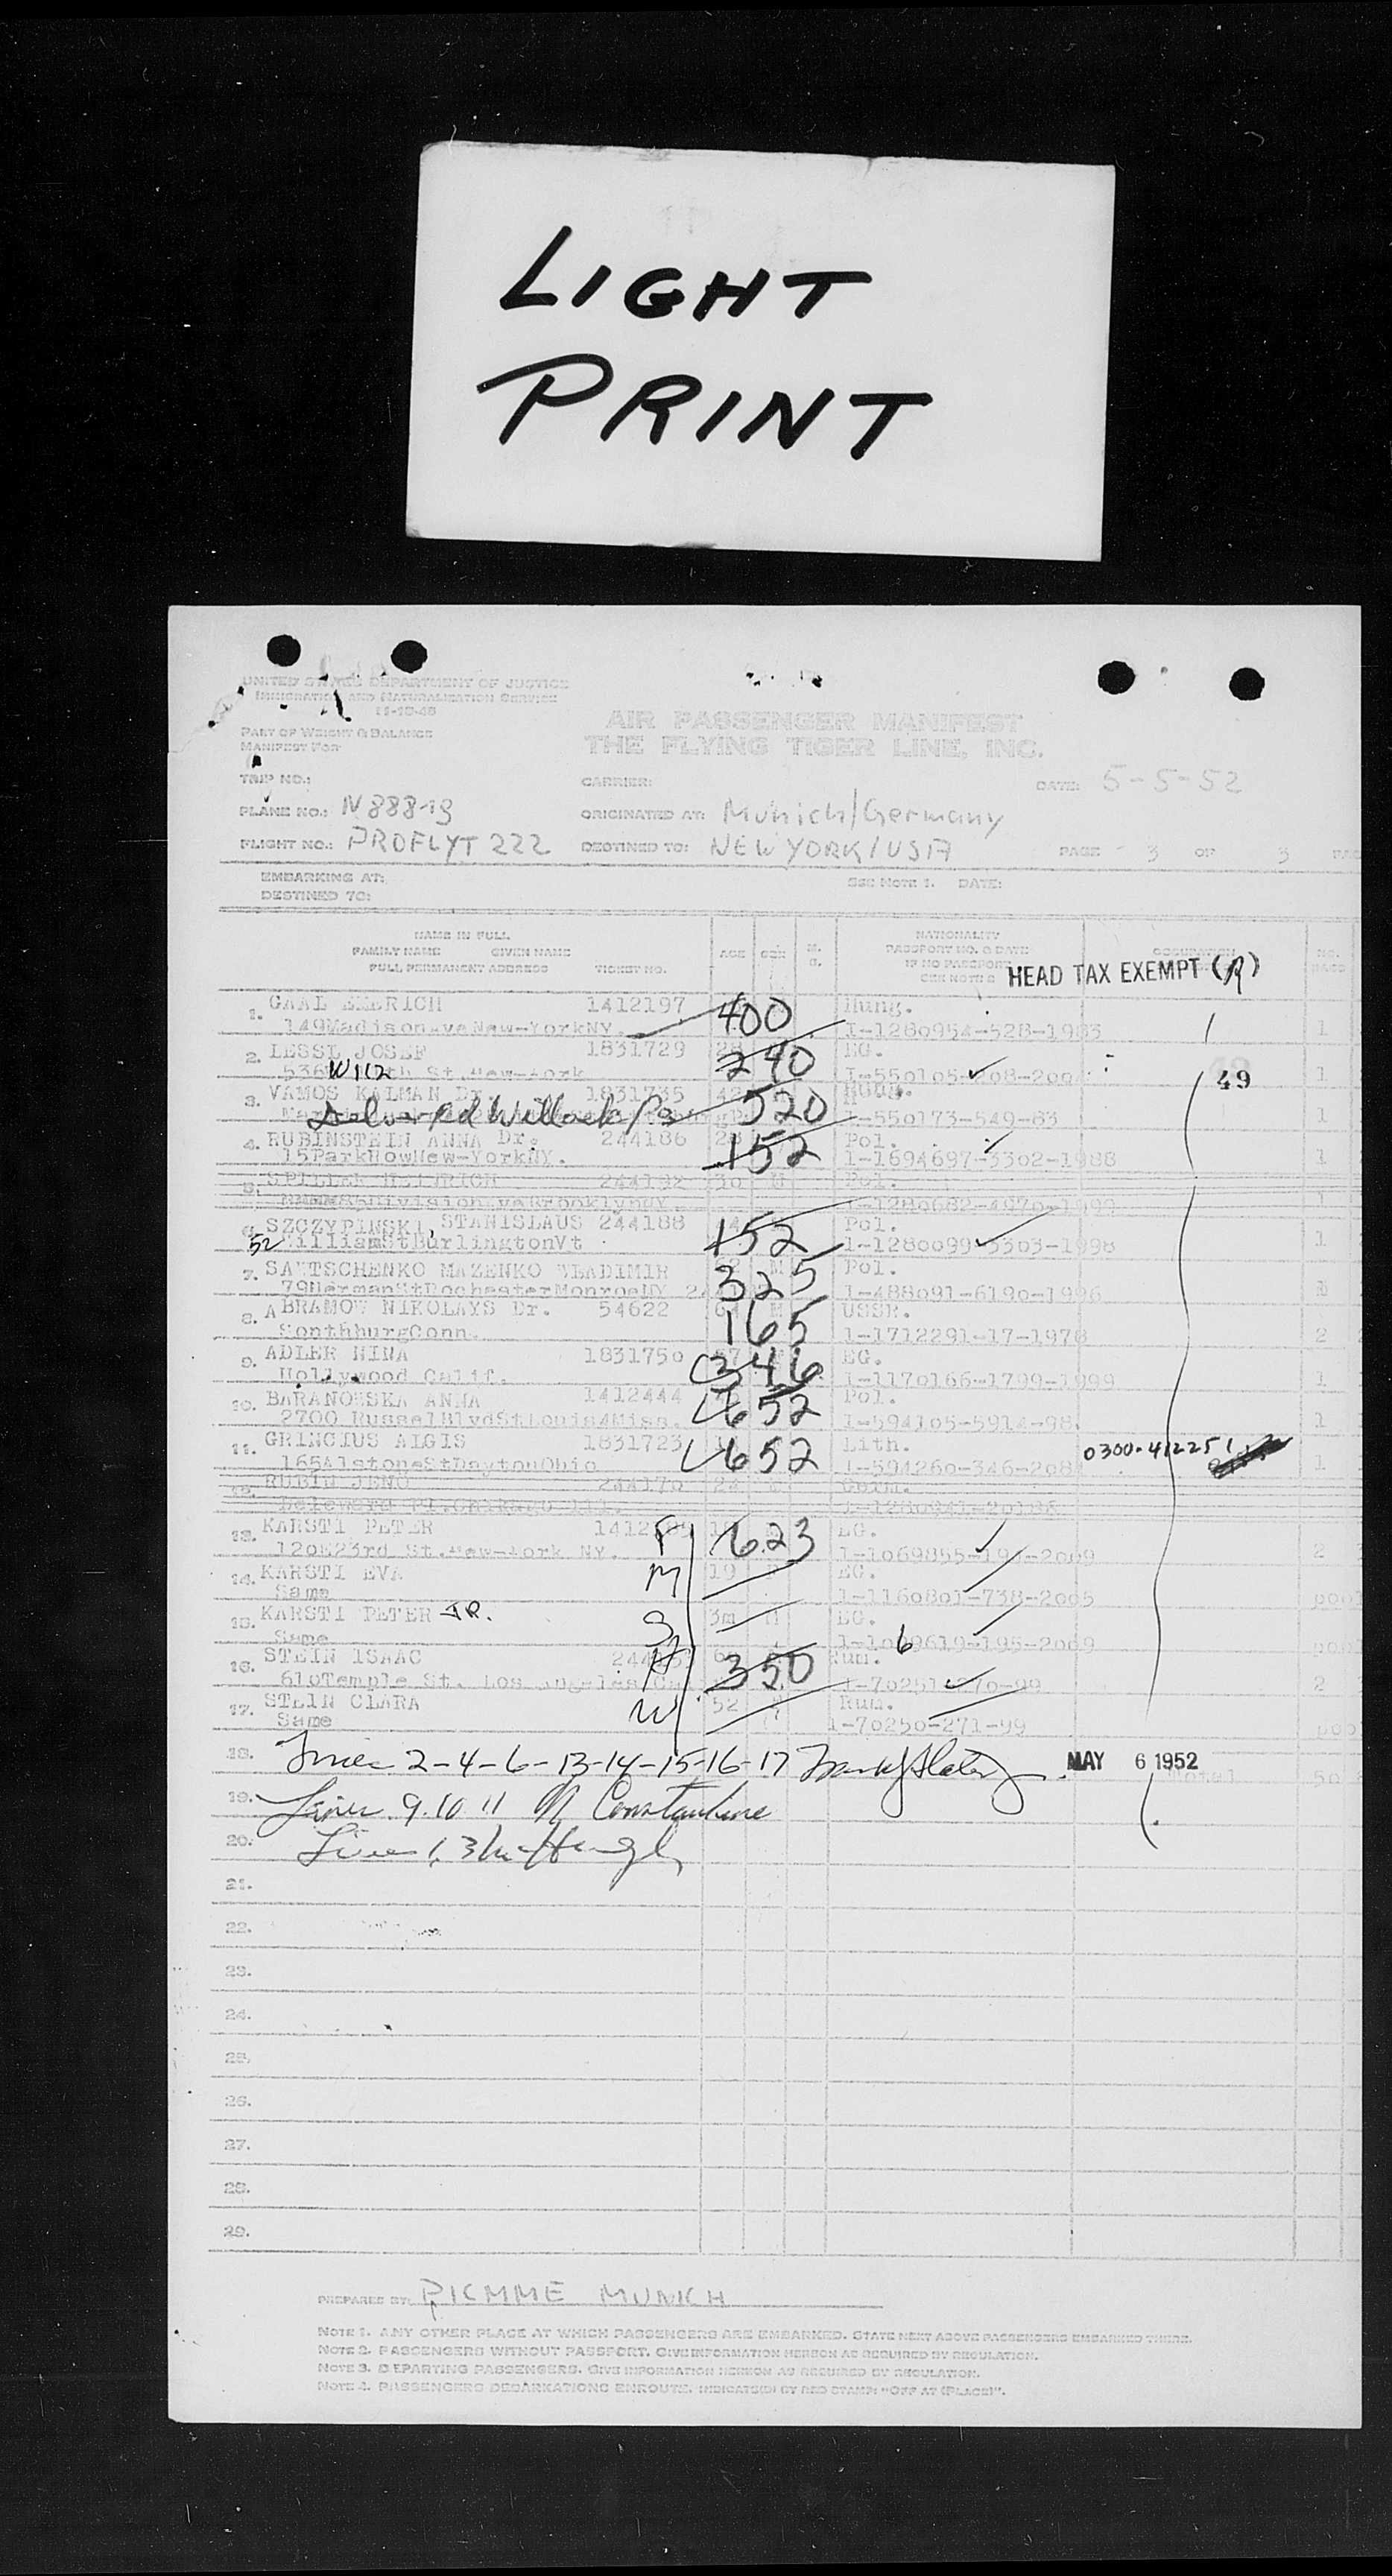 LIGHT
PRINT
UNITED STATES DEPARTMENT OF JUSTICE
IMMIGRATION AND NATURALIZATION SERVICE
11-10-48
PART OF WEIGHT & BALANCE
MANIFEST FOR
AIR PASSENGER MANIFEST
THE FLYING TIGER LINE, INC.
TRIP NO.: CARRIER: DATE: 5-5-52
PLANE NO.: N88819 ORIGINATED AT: Munich/Germany
FLIGHT NO.: PROFLYT 222 DESTINED TO: NEW YORK/USA PAGE 3 OF 3
EMBARKING AT: SEE NOTE 1. DATE:
DESTINED TO:
NAME IN FULL NATIONALITY
FAMILY NAME GIVEN NAME AGE SEX M. S. PASSPORT NO. & DATE OCCUPATION NO.
FULL PERMANENT ADDRESS TICKET NO. IF NO PASSPORT
SEE NOTE 2 HEAD TAX EXEMPT (R)
1. GAAL EMERICH 1412197 400 Hung.
149MadisonAveNew-YorkNY. I-1280954-528-1983 1
2. LESSL JOSEF 1831729 28 240 EG.
536 W 112th St.New-York I-550105- 1
49
3. VAMOS KALMAN Dr. 1831735 42 520 Hung.
Delivered I-550173-549-83 1
4. RUBINSTEIN ANNA Dr. 244186 28 152 Pol.
15ParkRowNew-YorkNY. I-1694697-3302-1988 1
5. SPILLER HEINRICH 244192 30 M Pol.
DivisionAveBrooklynNY I-1280682-4970-1999 1
6. SZCZYPINSKI, STANISLAUS 244188 152 Pol.
52 WilliamStBurlingtonVt I-1280099-3303-1998 1
7. SAWTSCHENKO MAZENKO WLADIMIR M 325 Pol.
79HermanStRochesterMonroeNY I-488091-6190-1996
8. ABRAMOW NIKOLAYS Dr. 54622 165 USSR.
SouthburgConn. I-1712291-17-1978 2
9. ADLER NINA 1831750 346 EG.
Hollywood Calif. I-1170166-1799-1999 1
10. BARANOWSKA ANNA 1412444 652 Pol.
2700 RusselBlvdStLouis4Miss. I-594105-5914-98 1
11. GRINCIUS ALGIS 1831723 652 Lith. 0300-412251
165AlstoneStDaytonOhio I-594260-346-208 1
12. RUBIN JENO 244170 Germ.
Delaware Pl.Chikago Ill. I-1280941-
13. KARSTI PETER 1412 F 623 EG.
120E23rd St.New-York NY. I-1069855-195-2009 2
14. KARSTI EVA M 19 EG.
Same I-1160801-738-2005
15. KARSTI PETER JR. S 3m M EG.
Same I-1069619-195-2009
16. STEIN ISAAC H 350 Rum. 6
610Temple St. Los Angeles I-70251-270-99 2
17. STEIN CLARA W 52 Rum.
Same I-70250-271-99
18. Lines 2-4-6-13-14-15-16-17 MAY 6 1952 Total 50
19. Lines 9.10 11 Constantine
20. Lines 1, 3
21.
22.
23.
24.
25.
26.
27.
28.
29.
PREPARED BY: PICMME MUNICH
NOTE 1. ANY OTHER PLACE AT WHICH PASSENGERS ARE EMBARKED. STATE NEXT ABOVE PASSENGERS EMBARKED THERE.
NOTE 2. PASSENGERS WITHOUT PASSPORT. GIVE INFORMATION HEREON AS REQUIRED BY REGULATION.
NOTE 3. DEPARTING PASSENGERS. GIVE INFORMATION HEREON AS REQUIRED BY REGULATION.
NOTE 4. PASSENGERS DEBARKATIONS ENROUTE. INDICATE(D) BY RED STAMP: "OFF AT (PLACE)".